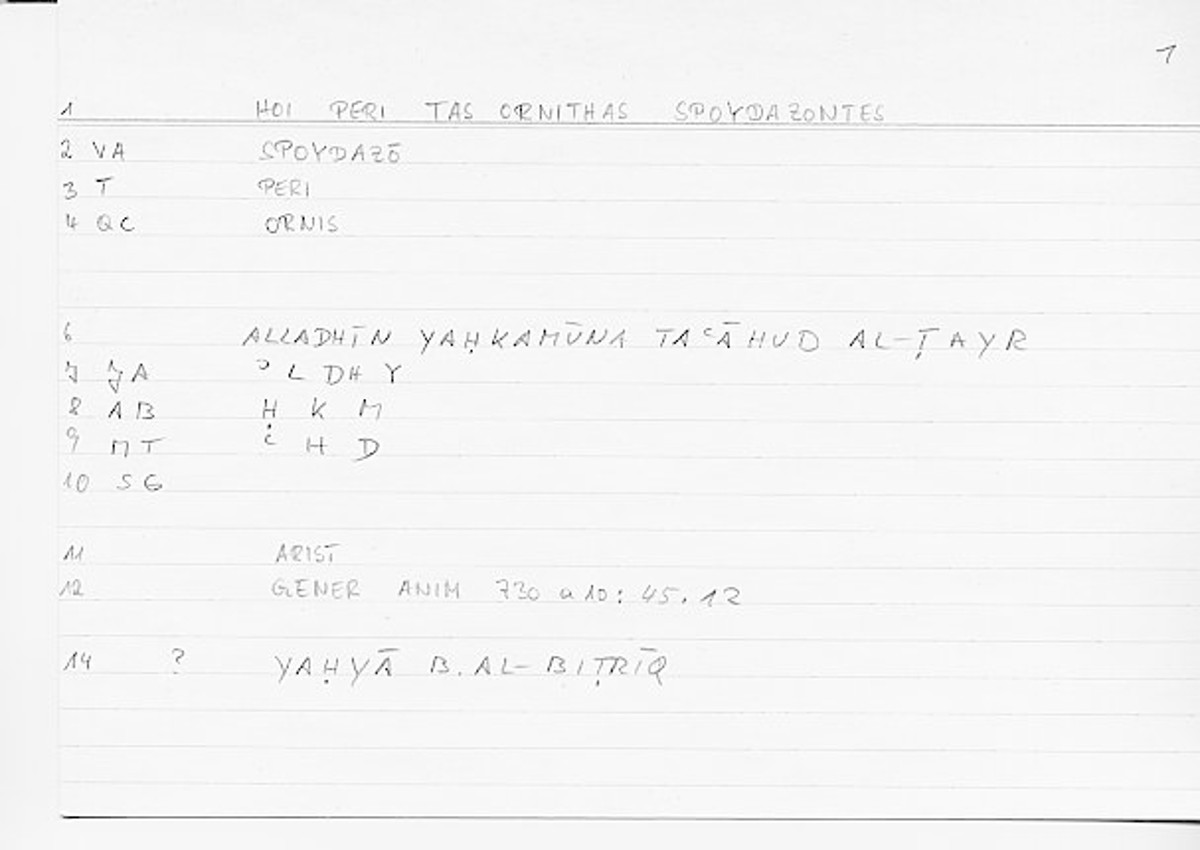 1
1 HOI PERI TAS ORNITHAS SPOYDAZONTES
2 VA SPOYDAZŌ
3 T PERI
4 QC ORNIS
6 ALLADHĪN YAḤKAMŪNA TAʿĀHUD AL-ṬAYR
7 JA ʾ L DH Y
8 AB Ḥ K M
9 MT ʿ H D
10 SG
11 ARIST
12 GENER ANIM 730 a 10: 45.12
14 ? YAḤYĀ B. AL-BIṬRĪQ